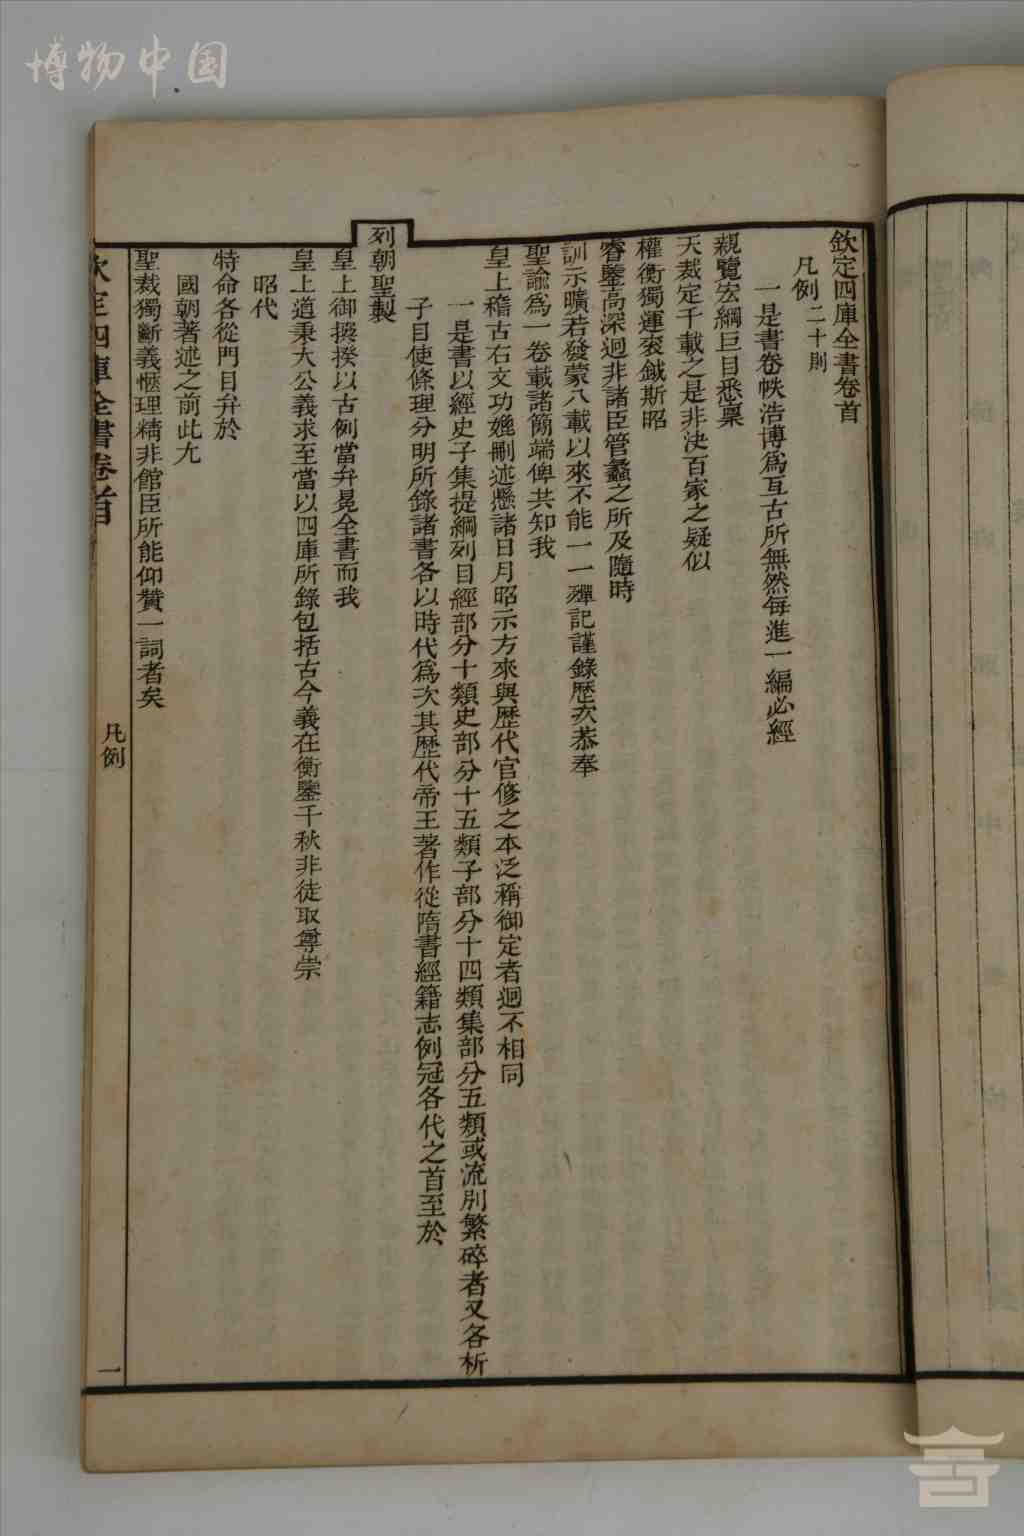 博物中国
欽定四庫全書卷首
凡例二十則
一是書卷帙浩博爲亙古所無然每進一編必經
親覽宏綱巨目悉稟
天裁定千載之是非決百家之疑似
權衡獨運袞鉞斯昭
睿鑒高深迥非諸臣管蠡之所及隨時
訓示曠若發蒙八載以來不能一一殫記謹錄歷次恭奉
聖諭爲一卷載諸簡端俾共知我
皇上稽古右文功媲刪述懸諸日月昭示方來與歷代官修之本泛稱御定者迥不相同
一是書以經史子集提綱列目經部分十類史部分十五類子部分十四類集部分五類或流別繁碎者又各析
子目使條理分明所錄諸書各以時代爲次其歷代帝王著作從隋書經籍志例冠各代之首至於
列朝聖製
皇上御撰揆以古例當弁冕全書而我
皇上道秉大公義求至當以四庫所錄包括古今義在衡鑒千秋非徒取尊崇
昭代
特命各從門目弁於
國朝著述之前此尤
聖裁獨斷義愜理精非館臣所能仰贊一詞者矣
欽定四庫全書卷首
凡例
一